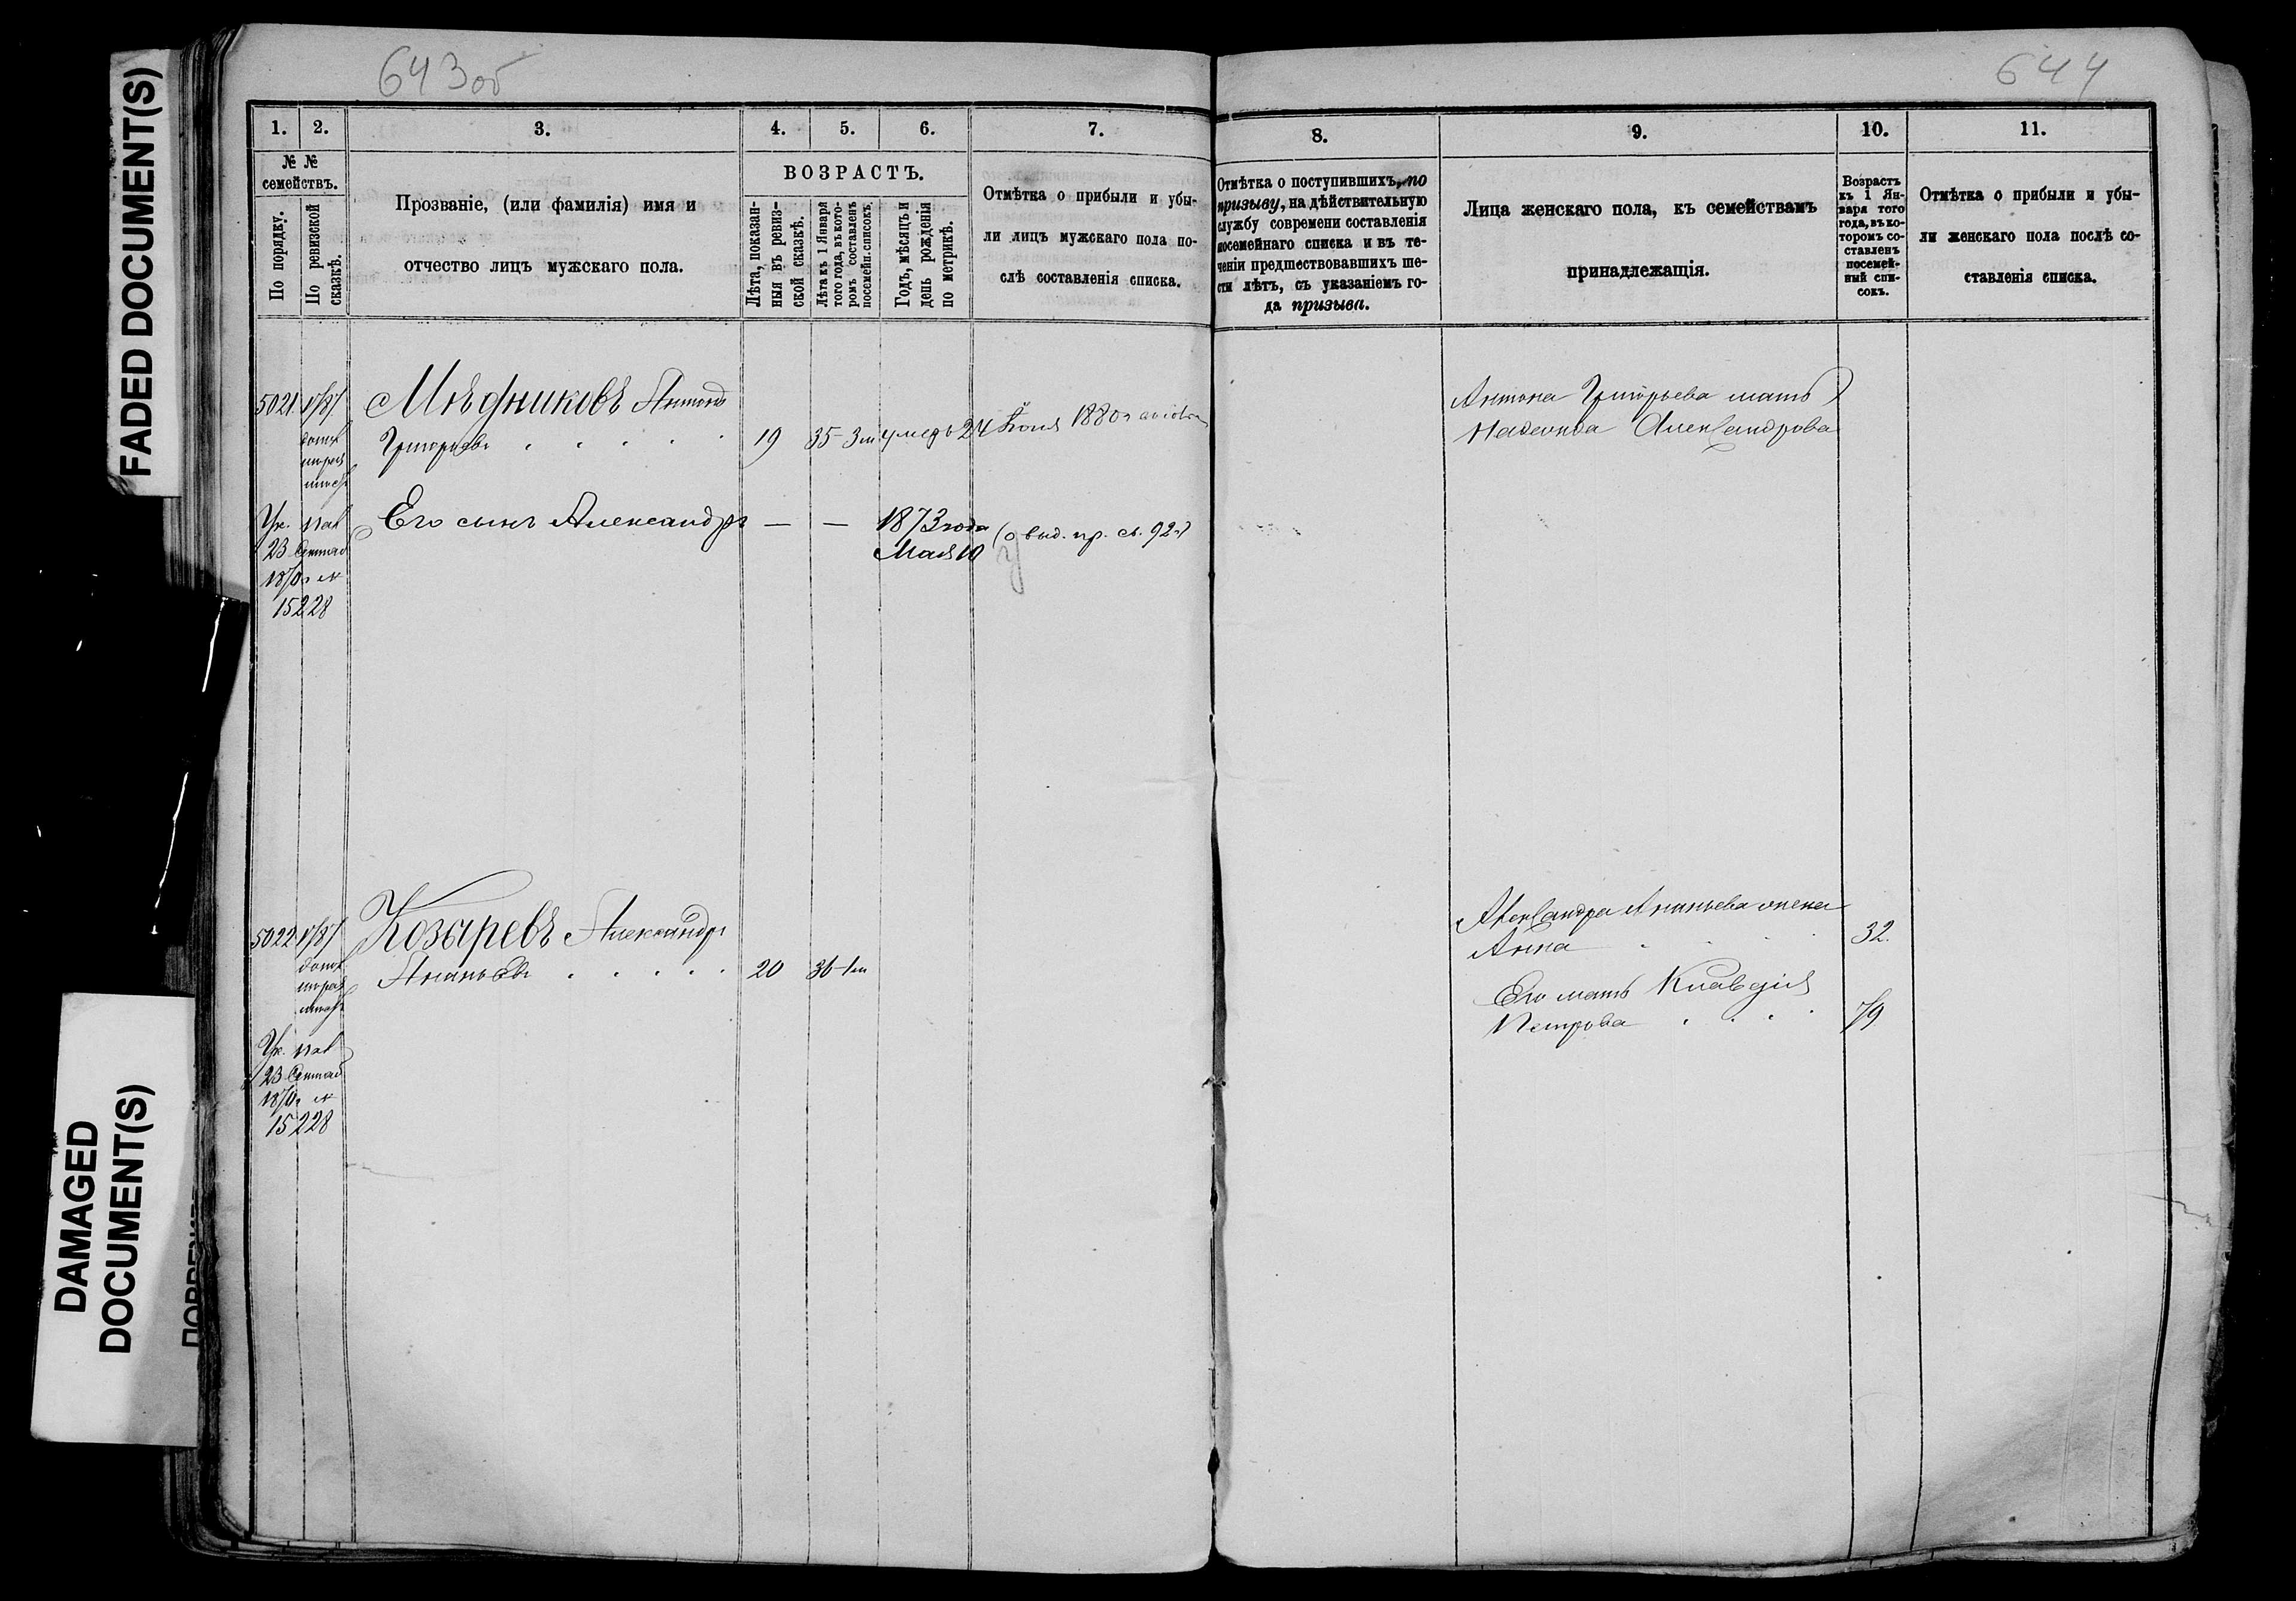 FADED DOCUMENT(S)
DAMAGED
DOCUMENT(S)
643об
644
1. 2. 3. 4. 5. 6. 7. 8. 9. 10. 11.
№ №
семействъ.
По порядку.
По ревизской
сказкѣ.
Прозваніе, (или фамилія) имя и
отчество лицъ мужскаго пола.
ВОЗРАСТЪ.
Лѣта, показан-
ныя въ ревиз-
ской сказкѣ.
Лѣта къ 1 Января
того года, въ кото-
ромъ составленъ
посемейн. списокъ.
Годъ, мѣсяцъ и
день рожденія
по метрикѣ.
Отмѣтка о прибыли и убы-
ли лицъ мужскаго пола по-
слѣ составленія списка.
Отмѣтка о поступившихъ, по
призыву, на дѣйствительную
службу современи составленія
посемейнаго списка и въ те-
ченіи предшествовавшихъ ше-
сти лѣтъ, съ указаніемъ го-
да призыва.
Лица женскаго пола, къ семействамъ
принадлежащія.
Возрастъ
къ 1 Ян-
варя того
года, въ ко-
торомъ со-
ставленъ
посемей-
ный спи-
сокъ.
Отмѣтка о прибыли и убы-
ли женскаго пола послѣ со-
ставленія списка.
5021
Мѣдниковъ Антонъ
Григорьевъ 19 35-3м умеръ 24 1880г
Антона Григорьева мать
Надежда Александрова
Ук. пал
23 Октяб
1870г №
15228
Его сынъ Александръ — —
1873 года
Мая 10
(о выд. пр. св. 92г)
5022
Козыревъ Александръ
Ананьевъ 20 36-1м
Александра Ананьева жена
Анна 32.
Его мать Клавдія
Петрова 79
Ук. пал
23 Октяб
1870г №
15228